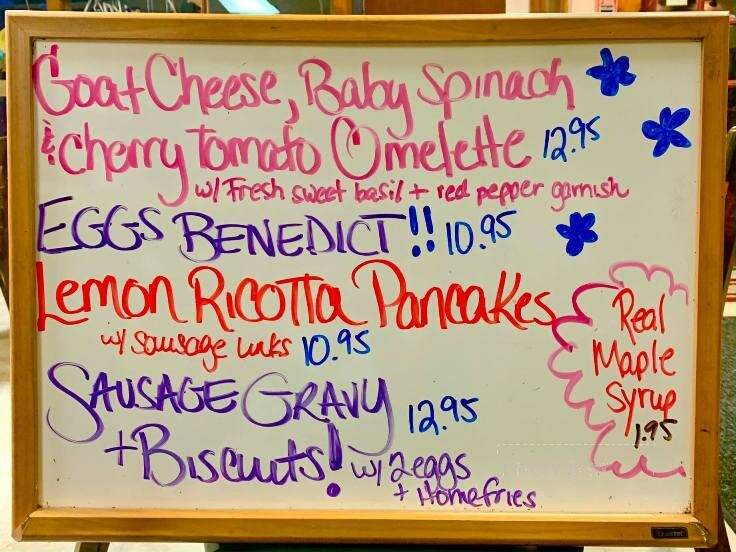 Goat Cheese, Baby Spinach
& Cherry Tomato Omelette 12.95
w/ Fresh sweet basil + red pepper garnish
EGGS BENEDICT!! 10.95
Lemon Ricotta Pancakes
w/ Sausage Links 10.95
Real
Maple
Syrup
1.95
SAUSAGE GRAVY 12.95
+ Biscuits! w/ 2 eggs
+ Homefries